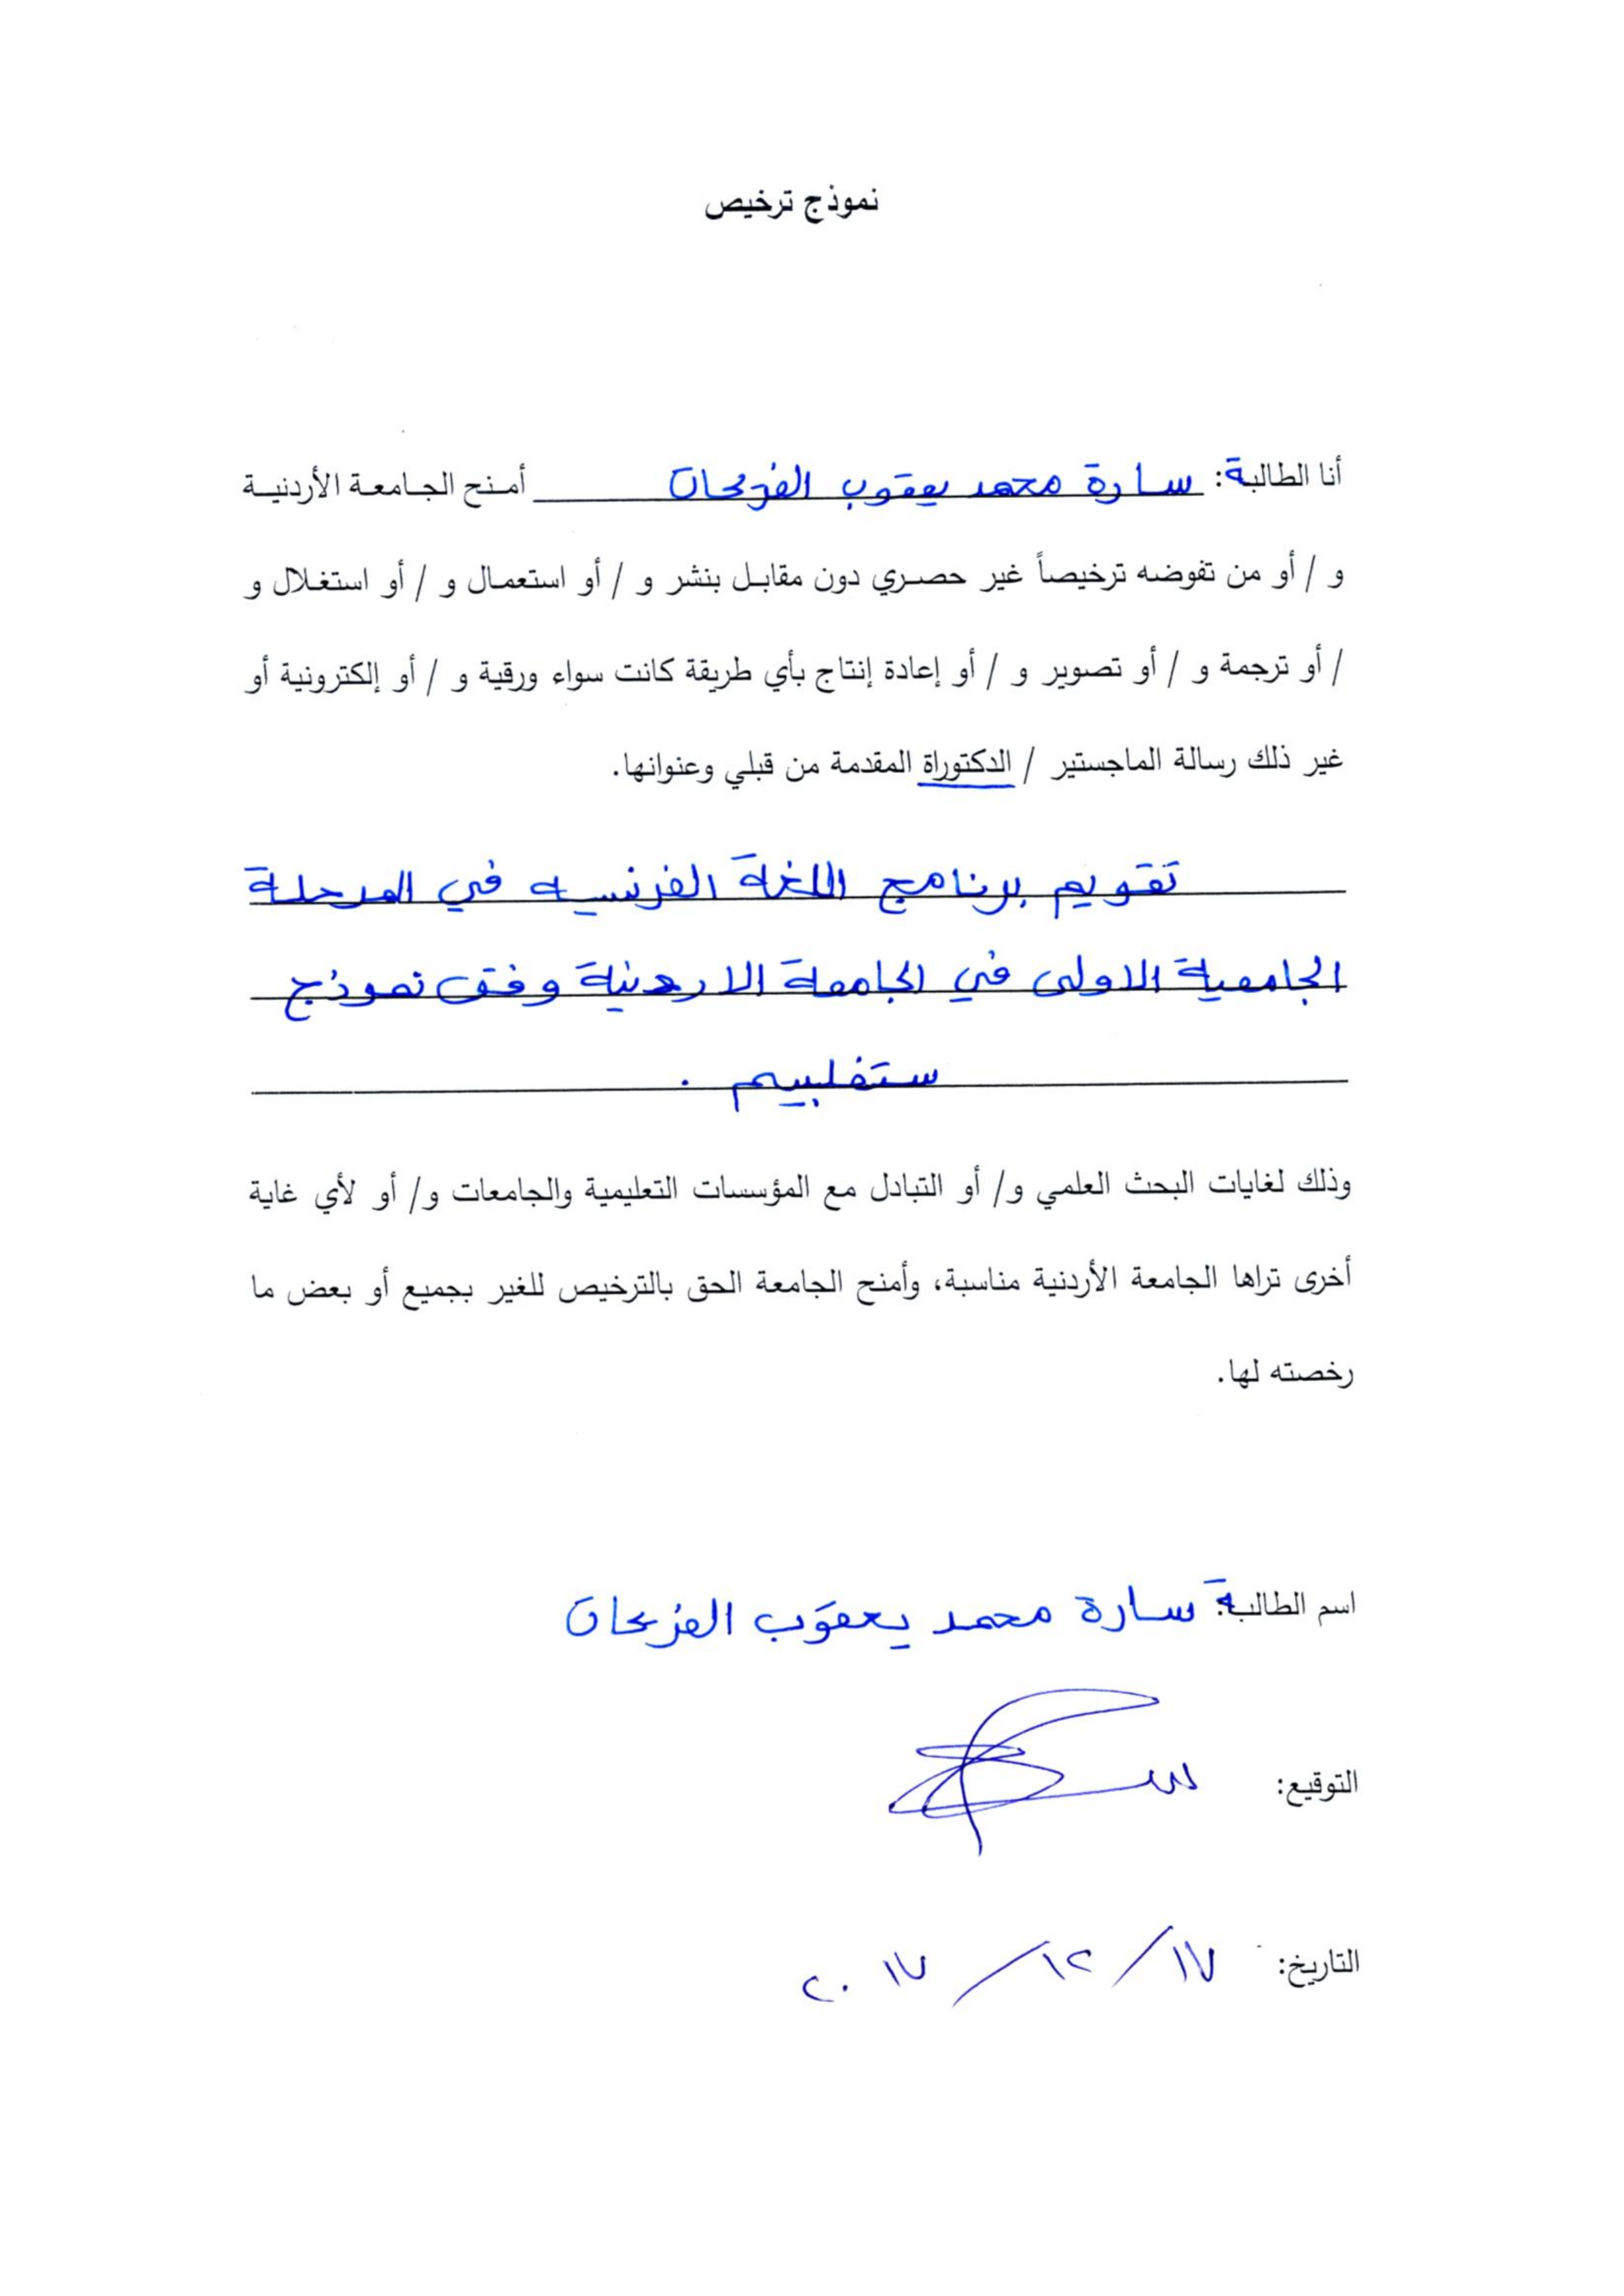 نموذج ترخيص
أنا الطالبة: سارة محمد يعقوب الفريحات أمنح الجامعة الأردنية
و / أو من تفوضه ترخيصاً غير حصري دون مقابل بنشر و / أو استعمال و / أو استغلال و
/ أو ترجمة و / أو تصوير و / أو إعادة إنتاج بأي طريقة كانت سواء ورقية و / أو إلكترونية أو
غير ذلك رسالة الماجستير / الدكتوراة المقدمة من قبلي وعنوانها.
تقويم برنامج اللغة الفرنسيه في المرحلة
الجامعية الاولى في الجامعة الاردنية وفق نموذج
ستفلبيم .
وذلك لغايات البحث العلمي و/ أو التبادل مع المؤسسات التعليمية والجامعات و/ أو لأي غاية
أخرى تراها الجامعة الأردنية مناسبة، وأمنح الجامعة الحق بالترخيص للغير بجميع أو بعض ما
رخصته لها.
اسم الطالبة: سارة محمد يعقوب الفريحات
التوقيع:
التاريخ: ١٧ / ١٢ / ٢٠١٧